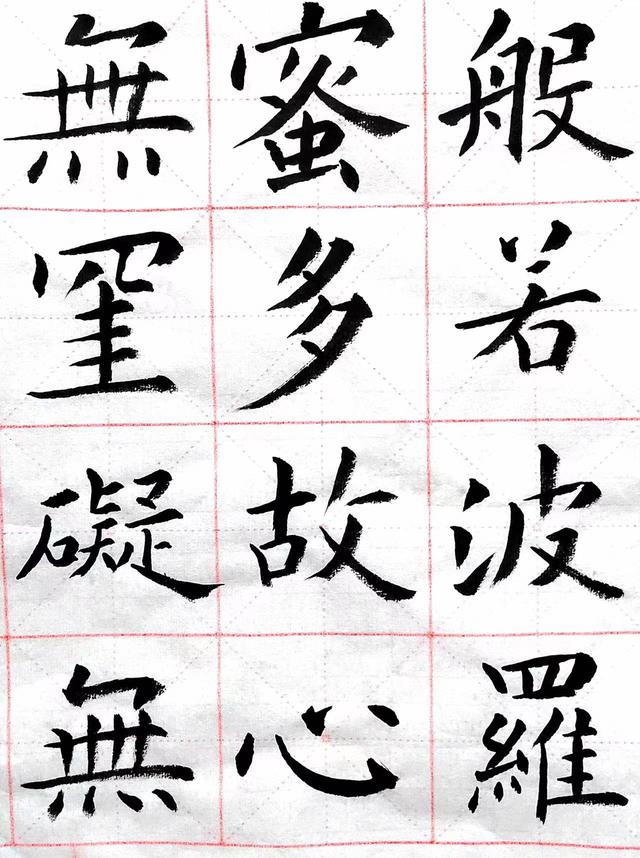 般若波羅
蜜多故心
無罣礙無